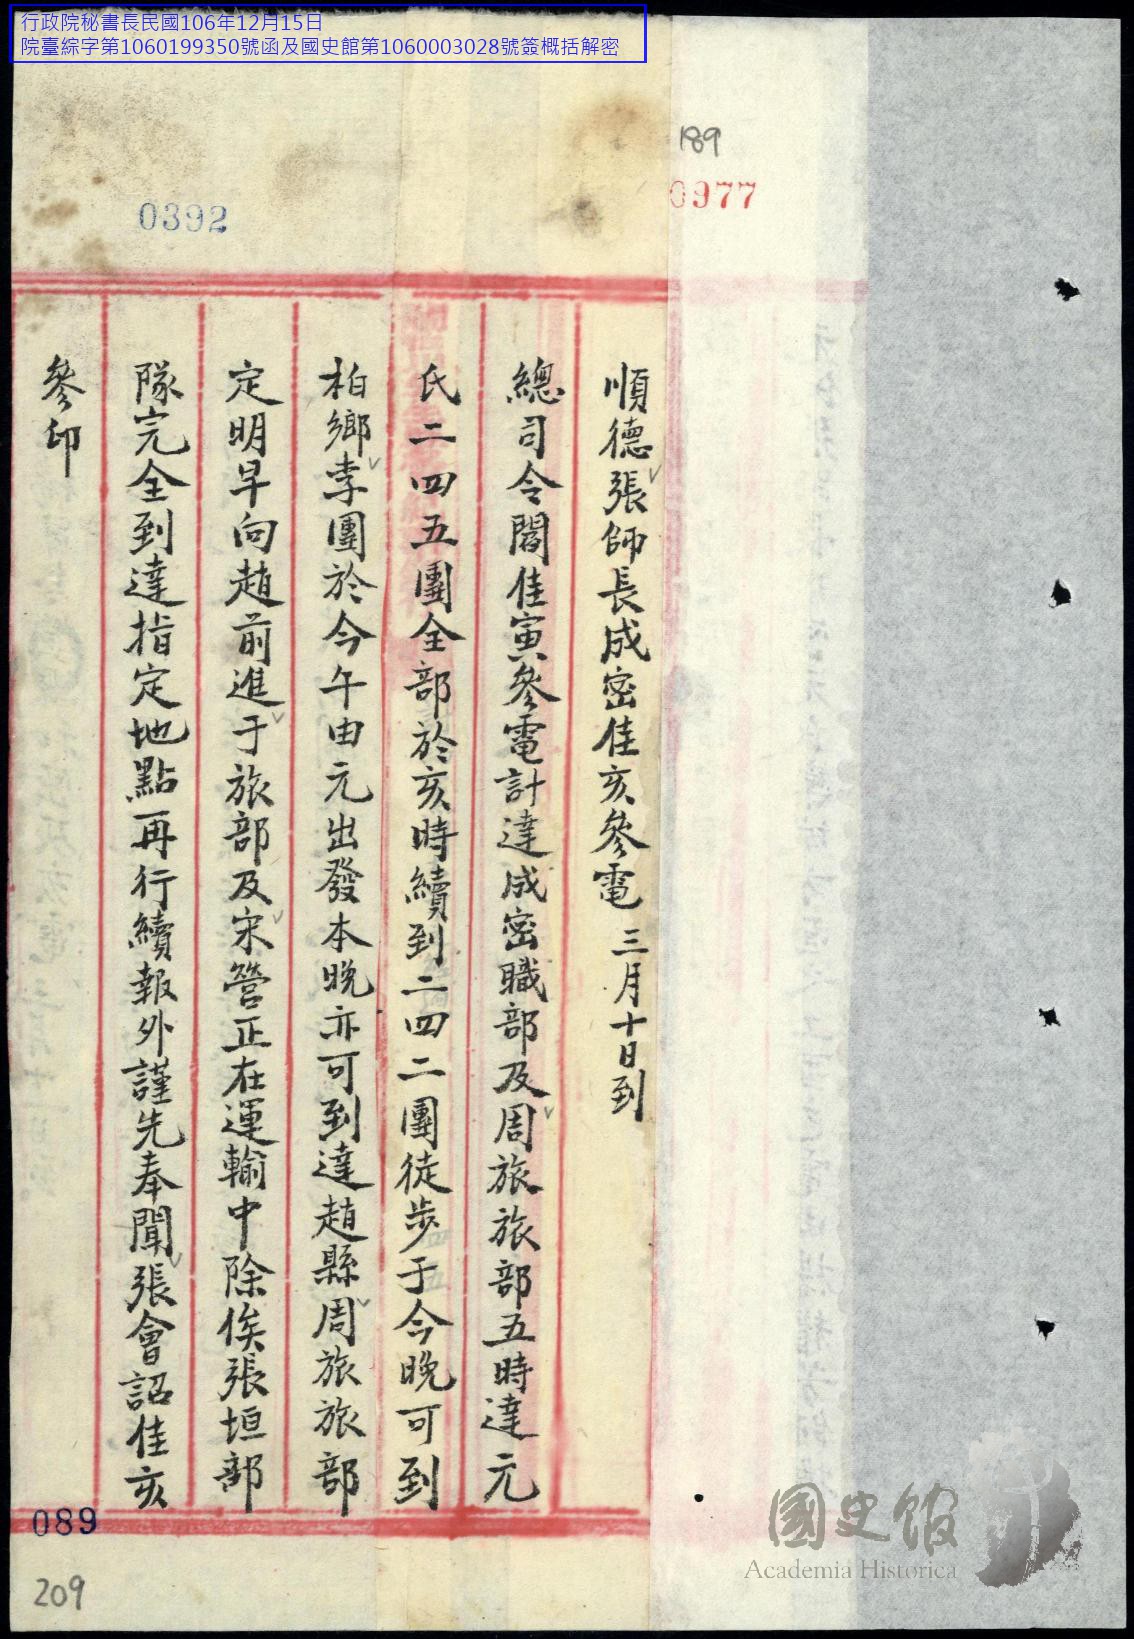 行政院秘書長民國106年12月15日
院臺綜字第1060199350號函及國史館第1060003028號簽概括解密
189
0977
0392
順德張師長成密佳亥參電 三月十日到
總司令閻佳寅參電計達成密職部及周旅旅部五時達元
氏二四五團全部於亥時續到二四二團徒步于今晚可到
柏鄉李團於今午由元出發本晚亦可到達趙縣周旅旅部
定明早向趙前進于旅部及宋營正在運輸中除俟張垣部
隊完全到達指定地點再行續報外謹先奉聞張會詔佳亥
參印
089
209
國史館
Academia Historica